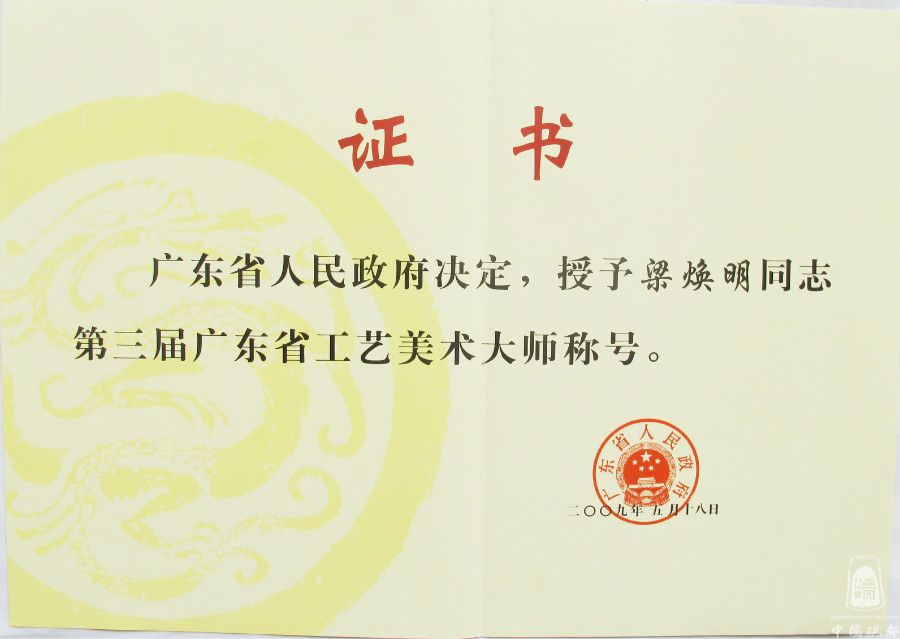 证 书
广东省人民政府决定，授予梁焕明同志
第三届广东省工艺美术大师称号。
广东省人民政府
二〇〇九年五月十八日
中国砚都